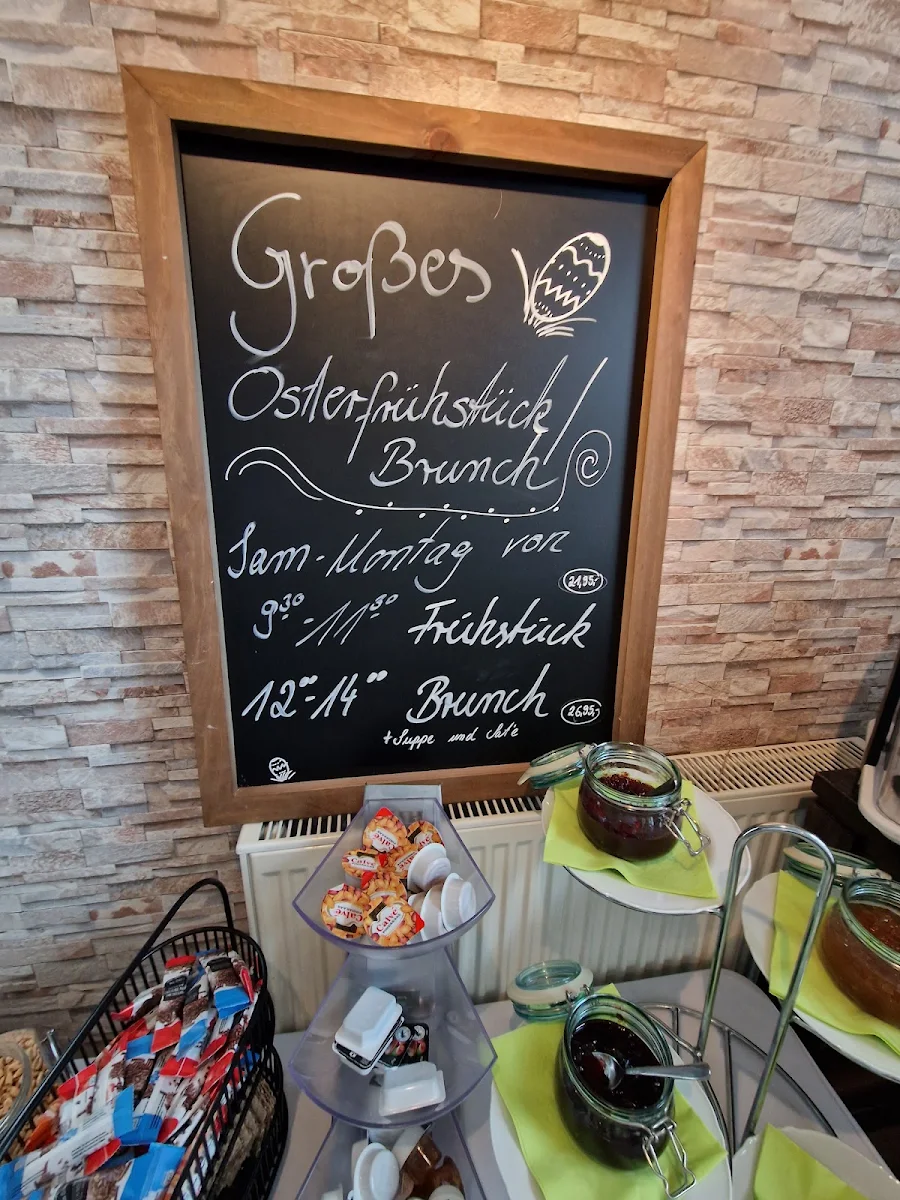 Großes
Osterfrühstück/
Brunch
Sam-Montag von
21,95,-
9³⁰-11³⁰ Frühstück
12⁰⁰-14⁰⁰ Brunch
26,95,-
+Suppe und
Calvé
Calvé
Calvé